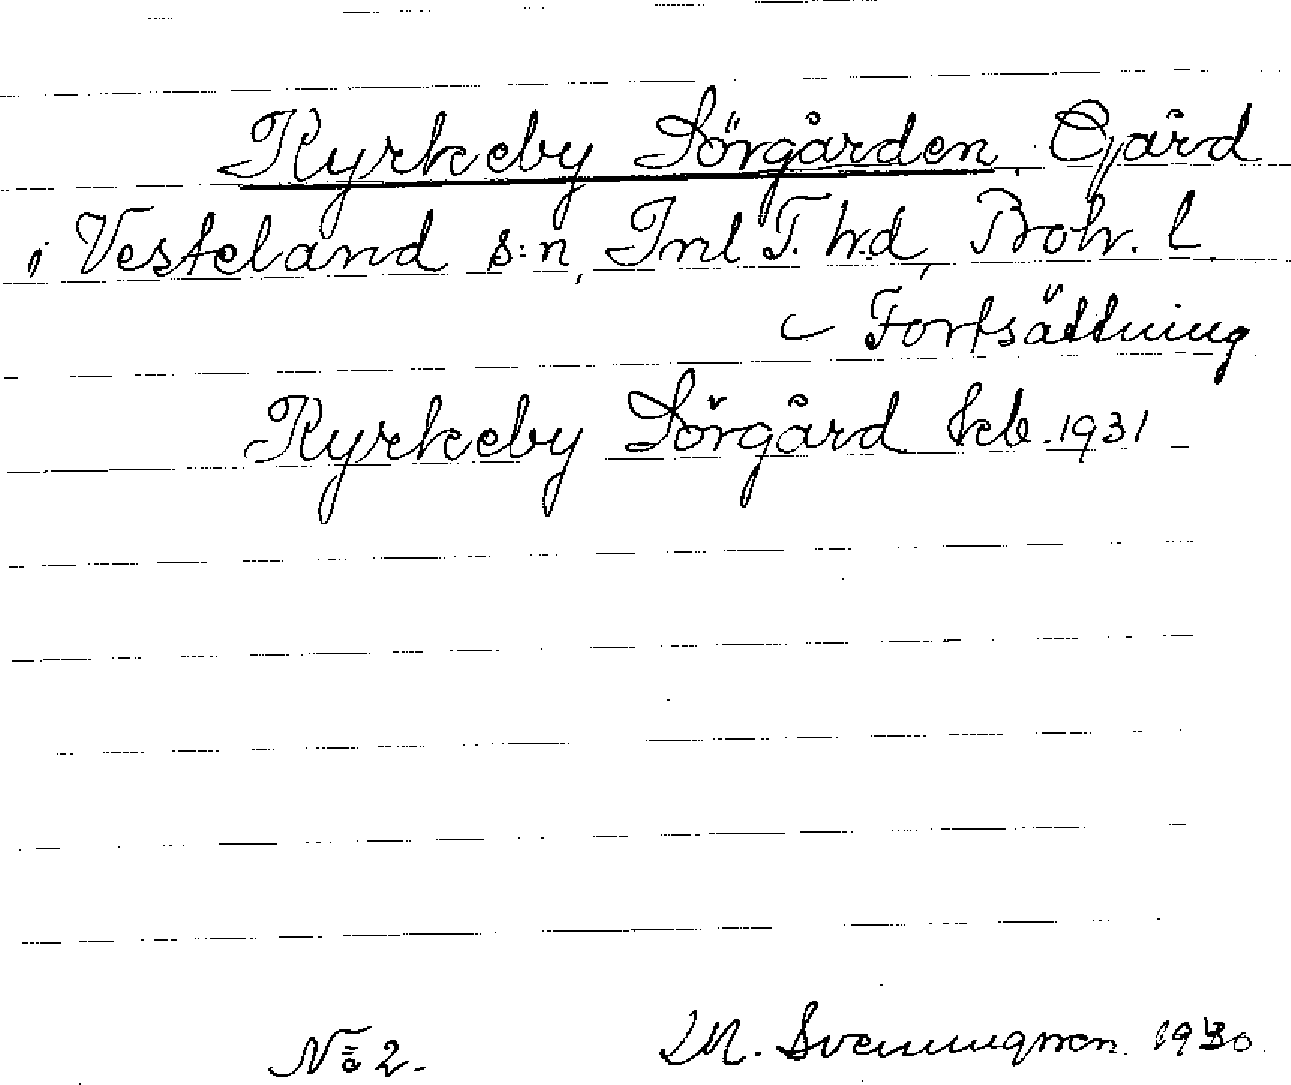 Kyrkeby Sörgården. Gård
i Vesteland s:n, Inl T. h.d, Boh. l.
Fortsättning
Kyrkeby Sörgård Jeb. 1931
No 2. M. Svenningsson. 1930